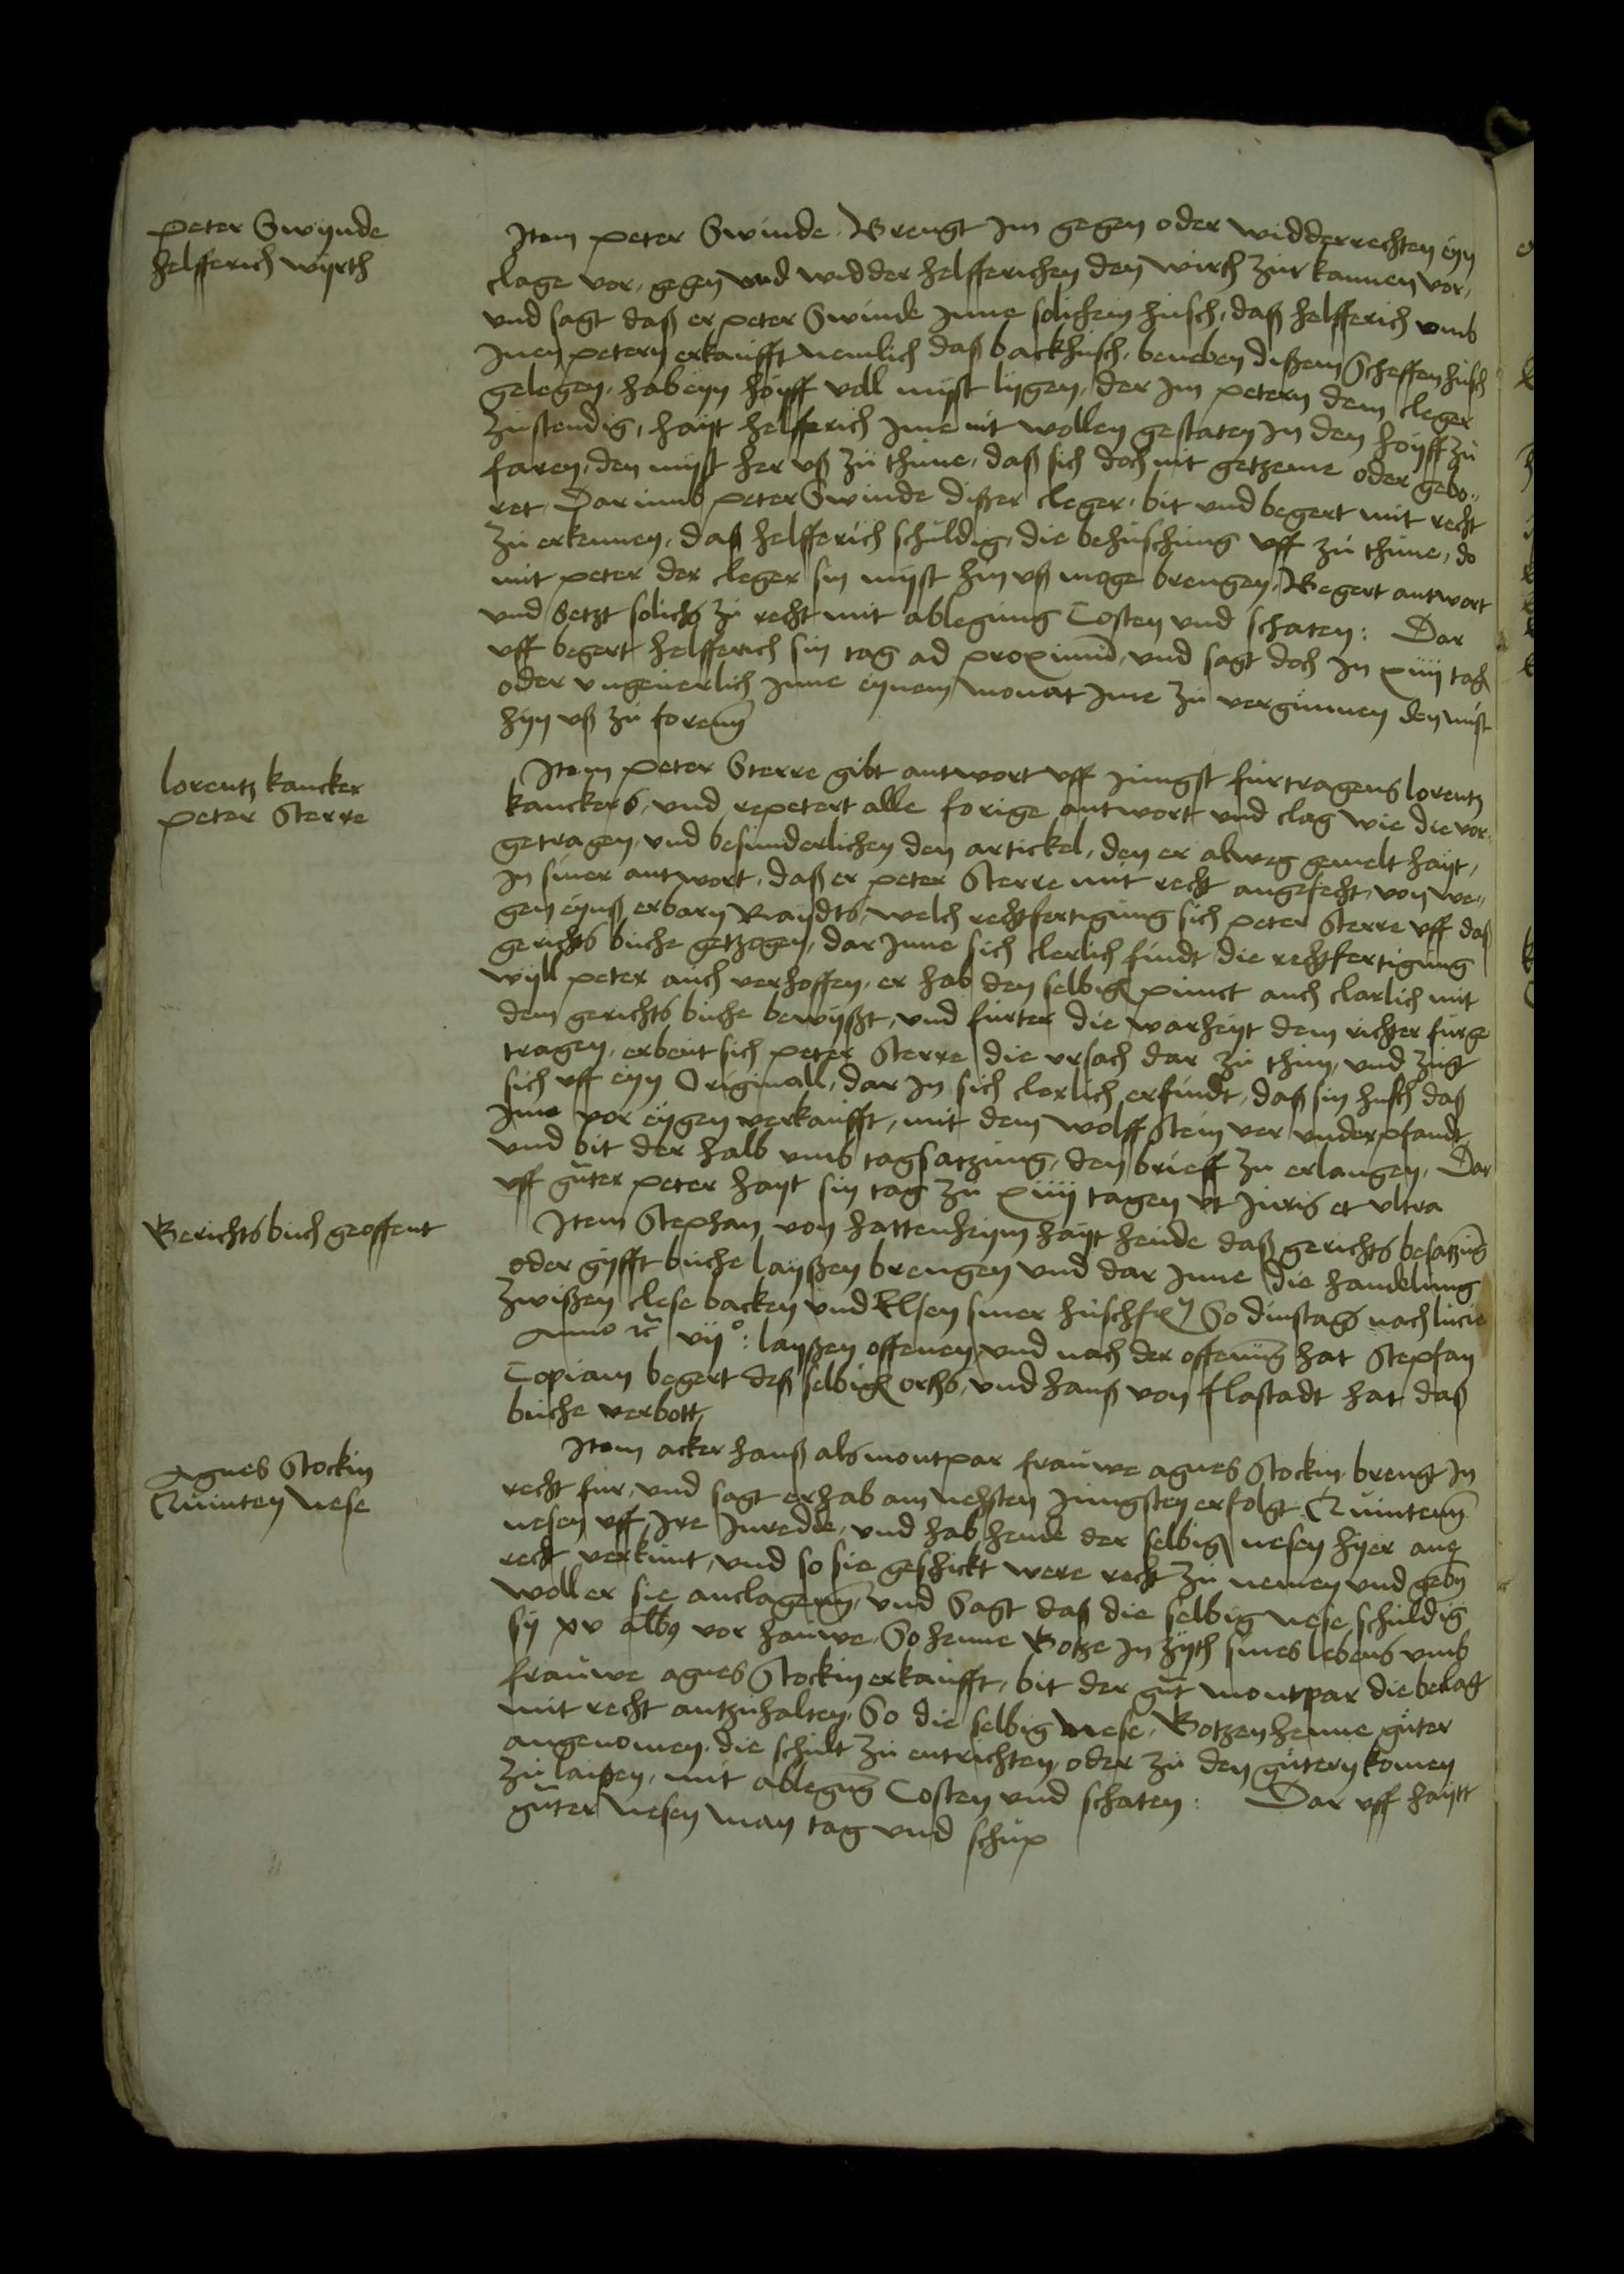 Peter Swynde
helfferich wyrth
Item peter Swinde Brengt Im gegen oder widderrechten eyn
clage vor, gegen vnd widder helfferichen den wirth zur kannen vor,
vnd sagt daß er peter Swinde Inne solichem husch, daß helfferich vmb
Inen petern erkaufft nemlich daß backhusch, beneben dißem Scheffen husch
gelegen, hab eyn hoyff voll myst lygen, der Im petern dem cleger
zustendig, hayt helfferich Ime nit wollen gestaten In den hoyff zu
faren, den myst her vß zu thune, daß sich doch nit getzeme oder gebo„
ret, Dar vmb peter Swinde dißer cleger, bit vnd begert mit recht
zu erkennen, daß helfferich schuldig, die behuschung vff zu thune, do
mit peter der cleger sin myst hin vß moge brengen, Begert antwort
vnd Setzt solichs zu recht mit ablegung Costen vnd schaten: Dar
vff begert helfferich sin tag ad proximum, vnd sagt doch In xiiij tag
oder vngeuerlich Inne eynem monat Ime zu vergunnen den mist
hyn vß zu foren
lorentz kancker
peter Sterre
Item peter Sterre gibt antwort vff Jungst furtragens lorentz
kanckers, vnd repetert alle forige antwort vnd clag wie die vor„
getragen, vnd besunderlichen den artickel, den er alweg gemelt hayt,
In siner antwort, daß er peter Sterre mit recht angefecht, von we„
gen eynß erbarn Raydts, welch rechtfertigung sich peter Sterre vff daß
gerichts buche getzogen, dar Inne sich clerlich findt die rechtfertigung
wyll peter auch verhoffen, er hab den selbig punct auch clarlich mit
dem gerichts buche bewyßt, vnd furter die warheyt dem richter furge
tragen, erbeut sich peter Sterre die vrsach dar zu thun, vnd zugt
sich vff eyn Originall, dar In sich clerlich erfindt, daß sin husch daß
Ime vor eygen verkaufft, mit dem wolff Stein ver vnderpfandt
vnd bit der halb vmb tagsatzung, den brieff zu erlangen, Dar
vff guter peter hayt sin tag zu xiiij tagen vt Juris et vltra
Gerichtsbuch geoffent
Item Stephan von hattenheym hayt heude daß gerichts besatzung
oder gyfft buche layßen brengen vnd dar Inne die handelung
zwißen clese backen vnd Elsen siner huschfr So dinstag nach lucie
Anno rc vij°: layßen offenen, vnd nach der offenung hat Stepfan
Copiam begert deß selbig orths, vnd hanß von flastadt hat daß
buche verbott,
Agnes Stockin
Quinten Nese
Item acker hanß als montpar frauwe agnes Stockin brengt In
recht fur, vnd sagt er hab am nehsten Jungsten erfolgt Quinten
nesen vff Ire Inredde, vnd hab heude der selbig nesen hyer ane
recht verkunt, vnd so sie geschickt were recht zu nemen vnd geben
woll er sie anclagen, vnd Sagt daß die selbig nese schuldig
sy xv albus vor hauwe, So henne Botze In zyth sines lebens vmb
frauwe agnes Stockin erkaufft, bit der gut montpar die beclagt
mit recht antzuhalten, So die selbig nese, Botzen henne guter
angenomen, die schult zu entrichten, oder zu den gutern komen
zu laißen, mit ablegung Costen vnd schaten: Dar vff haytt
guter Nesen man tag vnd schup